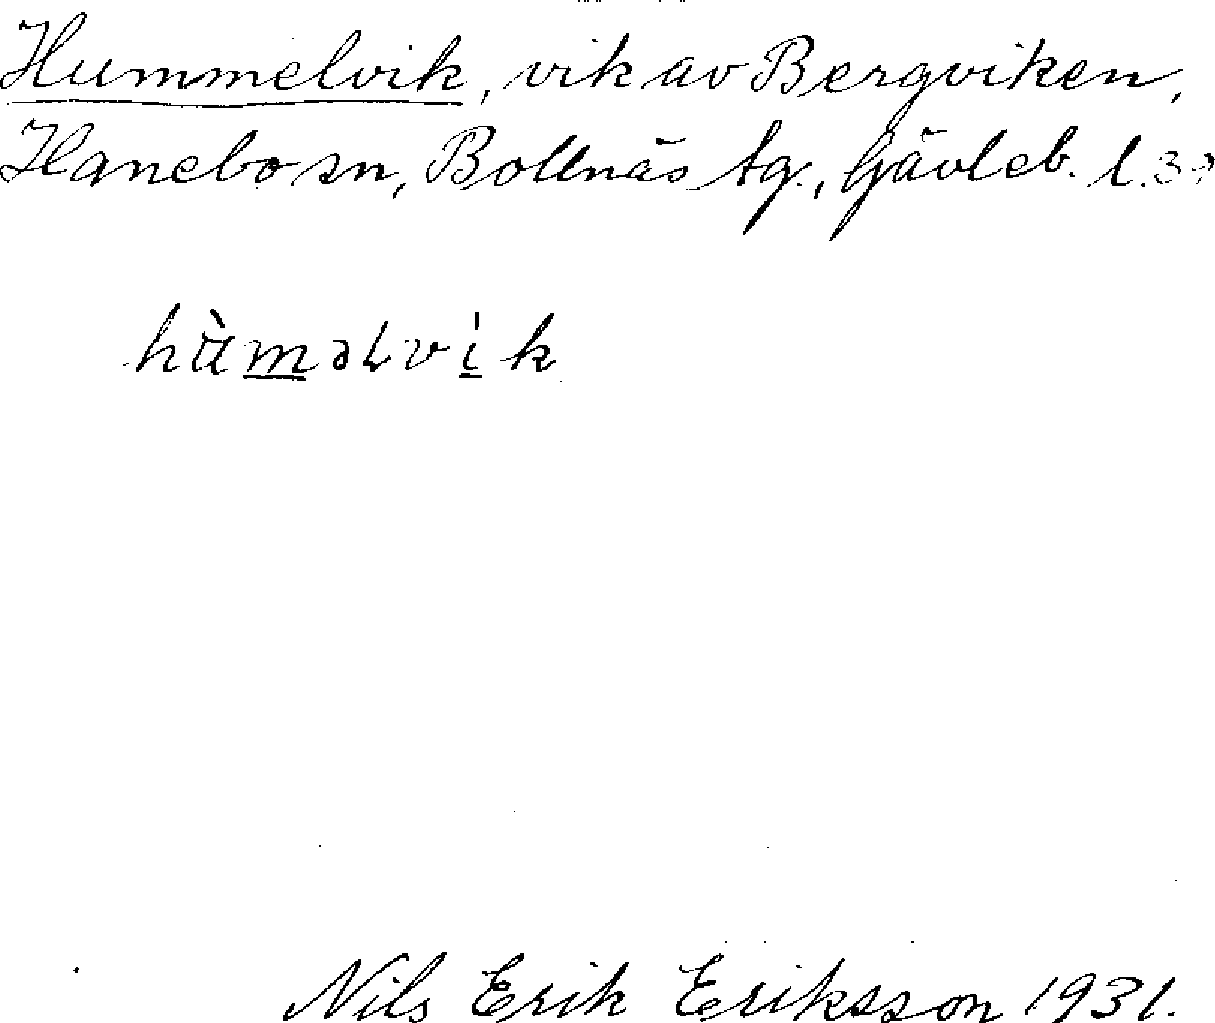 Hummelvik, vik av Bergviken,
Hanebo sn, Bollnäs tg., Gävleb. l.
hàmǝɫvík
Nils Erik Eriksson 1931.